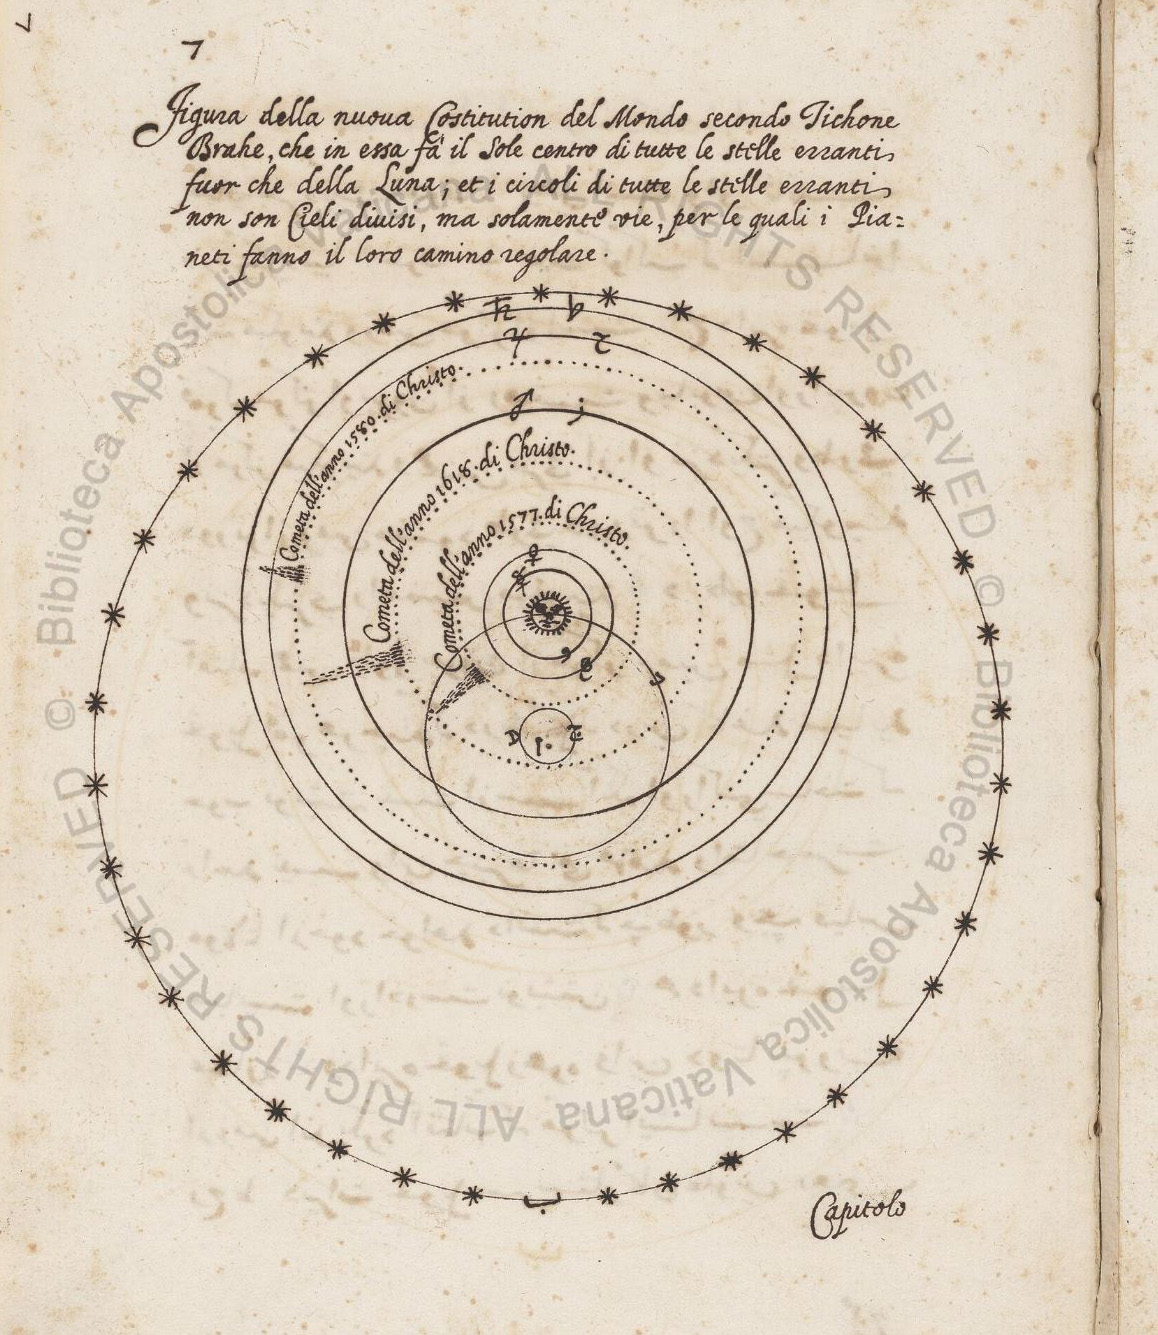 7
Figura della nuova Costitution del Mondo secondo Tichone
Brahe, che in essa fà il Sole centro di tutte le stelle erranti,
fuor che della Luna; et i circoli di tutte le stelle erranti,
non son Cieli divisi, ma solamente vie, per le quali i Pia=
neti fanno il loro camino regolare.
♄
♃
♂
Cometa dell'anno 1580. di Christo.
Cometa dell'anno 1618. di Christo.
Cometa dell'anno 1577. di Christo.
♀
☿
ب
Capitolo
© Biblioteca Apostolica Vaticana ALL RIGHTS RESERVED
© Biblioteca Apostolica Vaticana ALL RIGHTS RESERVED